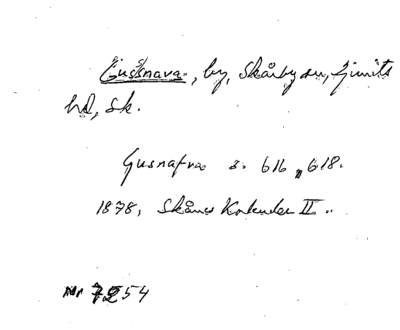 Gussnava, by, Skårby sn, Ljunits
hd, Sk.
Gusnafva s. 616, 618.
1878, Skånes Kalender II..
7254